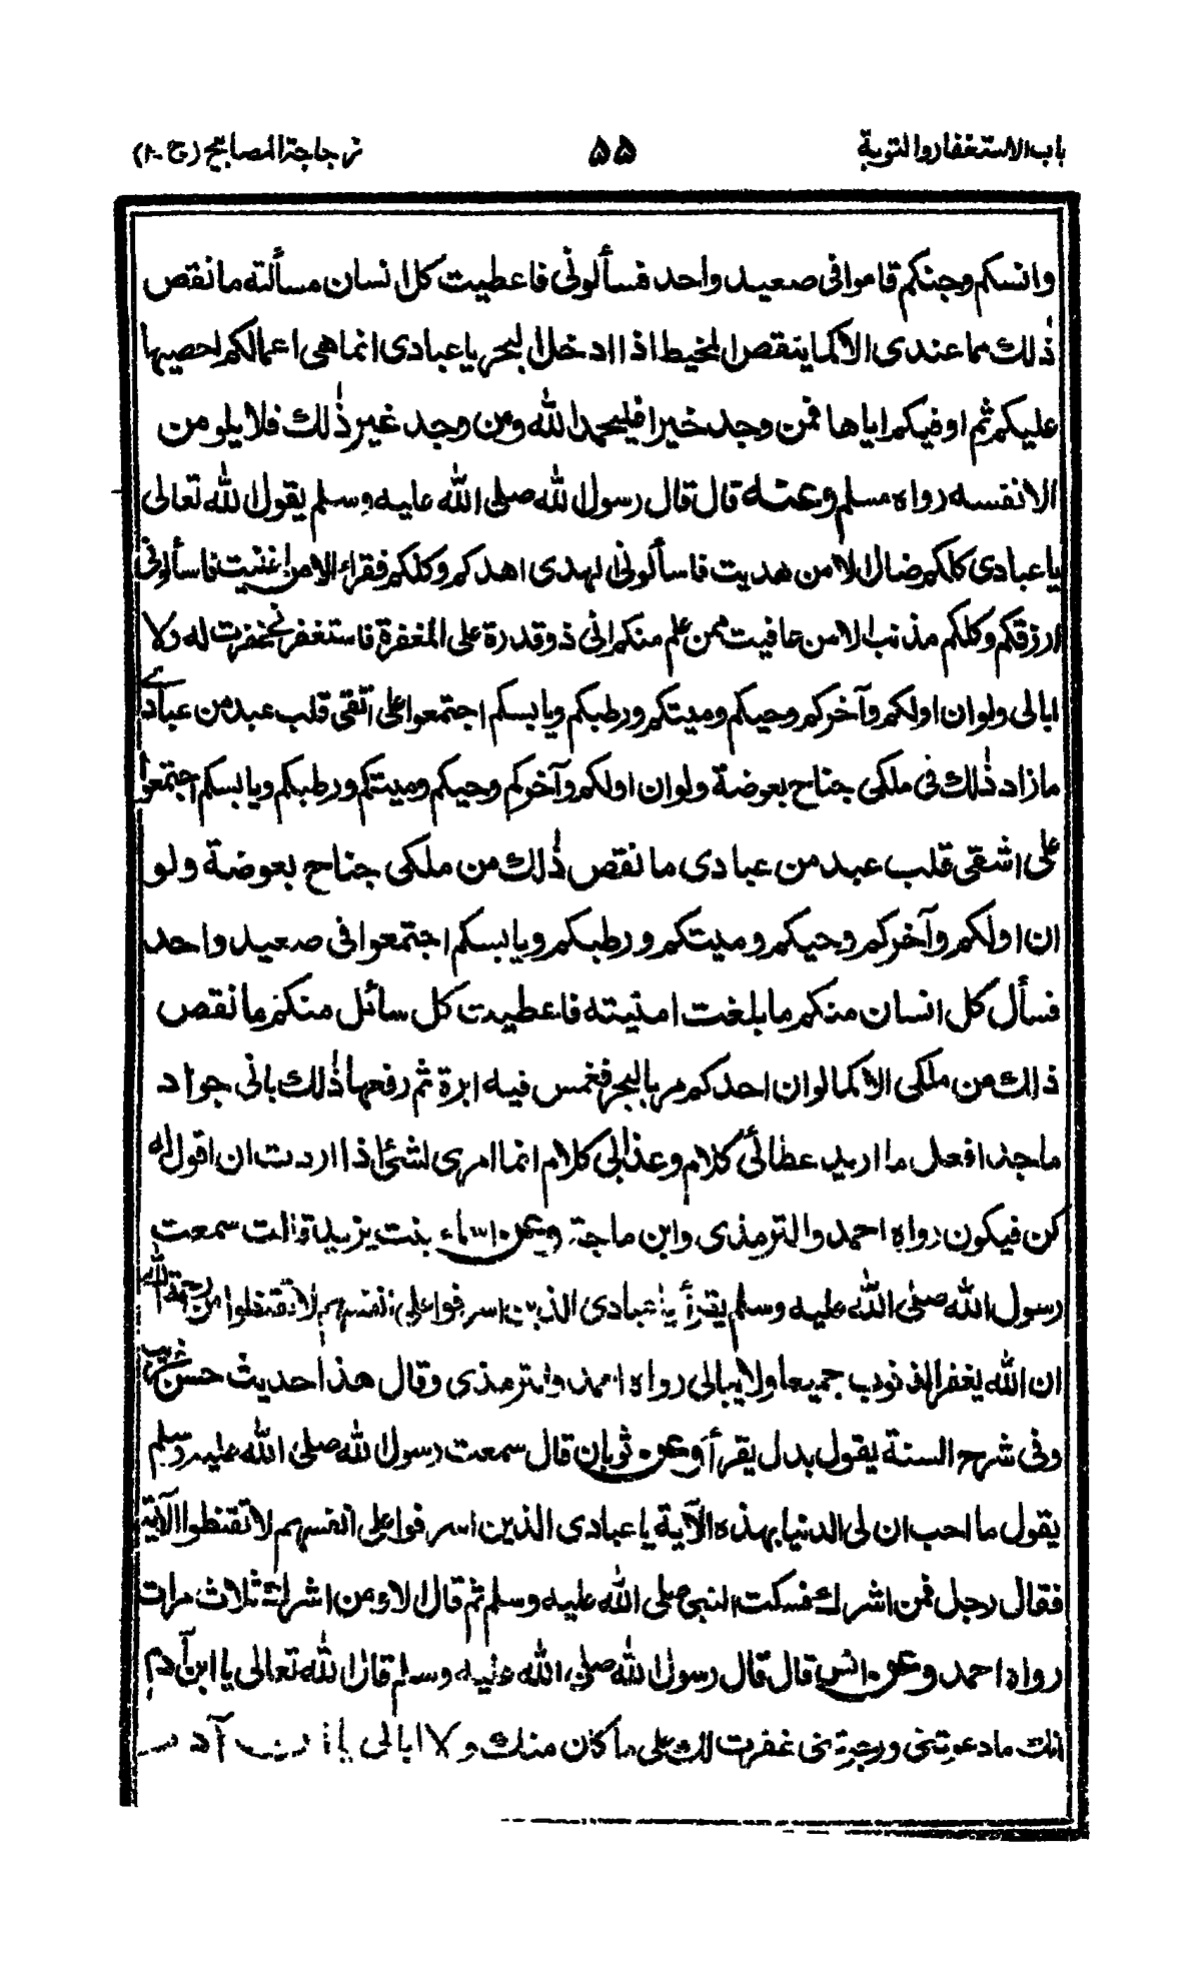 باب الاستغفار والتوبة ۵۵ زجاجة المصابيح (ج-۲)
وانسكم وجنكم قاموا فى صعيد واحد فسألونى فاعطيت كل انسان مسألته ما نقص
ذٰلك مما عندى الا كما ينقص المخيط اذا ادخل البحر يا عبادى انما هى اعمالكم احصيها
عليكم ثم اوفيكم اياها فمن وجد خيرا فليحمد الله ومن وجد غير ذٰلك فلا يلومن
الا نفسه رواه مسلم وعنه قال قال رسول الله صلى الله عليه وسلم يقول الله تعالى
يا عبادى كلكم ضال الا من هديت فاسألونى الهدى اهدكم وكلكم فقراء الا من اغنيت فاسألونى
ارزقكم وكلكم مذنب الا من عافيت فمن علم منكم انى ذو قدرة على المغفرة فاستغفرنى غفرت له ولا
ابالى ولو ان اولكم وآخركم وحيكم وميتكم ورطبكم ويابسكم اجتمعوا على اتقى قلب عبد من عبادى
ما زاد ذٰلك فى ملكى جناح بعوضة ولو ان اولكم وآخركم وحيكم وميتكم ورطبكم ويابسكم اجتمعوا
على اشقى قلب عبد من عبادى ما نقص ذٰلك من ملكى جناح بعوضة ولو
ان اولكم وآخركم وحيكم وميتكم ورطبكم ويابسكم اجتمعوا فى صعيد واحد
فسأل كل انسان منكم ما بلغت امنيته فاعطيت كل سائل منكم ما نقص
ذلك من ملكى الا كما لو ان احدكم مر بالبحر فغمس فيه ابرة ثم رفعها ذٰلك بانى جواد
ماجد افعل ما اريد عطائى كلام وعذابى كلام انما امرى لشئ اذا اردت ان اقول له
كن فيكون رواه احمد والترمذى وابن ماجة وعن اسماء بنت يزيد قالت سمعت
رسول الله صلى الله عليه وسلم يقرأ يا عبادى الذين اسرفوا على انفسهم لا تقنطوا من رحمة الله
ان الله يغفر الذنوب جميعا ولا يبالى رواه احمد والترمذى وقال هذا حديث حسن غريب
وفى شرح السنة يقول بدل يقرأ وعن ثوبان قال سمعت رسول الله صلى الله عليه وسلم
يقول ما احب ان لى الدنيا بهذه الآية يا عبادى الذين اسرفوا على انفسهم لا تقنطوا الآية
فقال رجل فمن اشرك فسكت النبى صلى الله عليه وسلم ثم قال الا ومن اشرك ثلاث مرات
رواه احمد وعن انس قال قال رسول الله صلى الله عليه وسلم قال الله تعالى يا ابن آدم
انك ما دعوتنى ورجوتنى غفرت لك على ما كان منك ولا ابالى يا ابن آدم